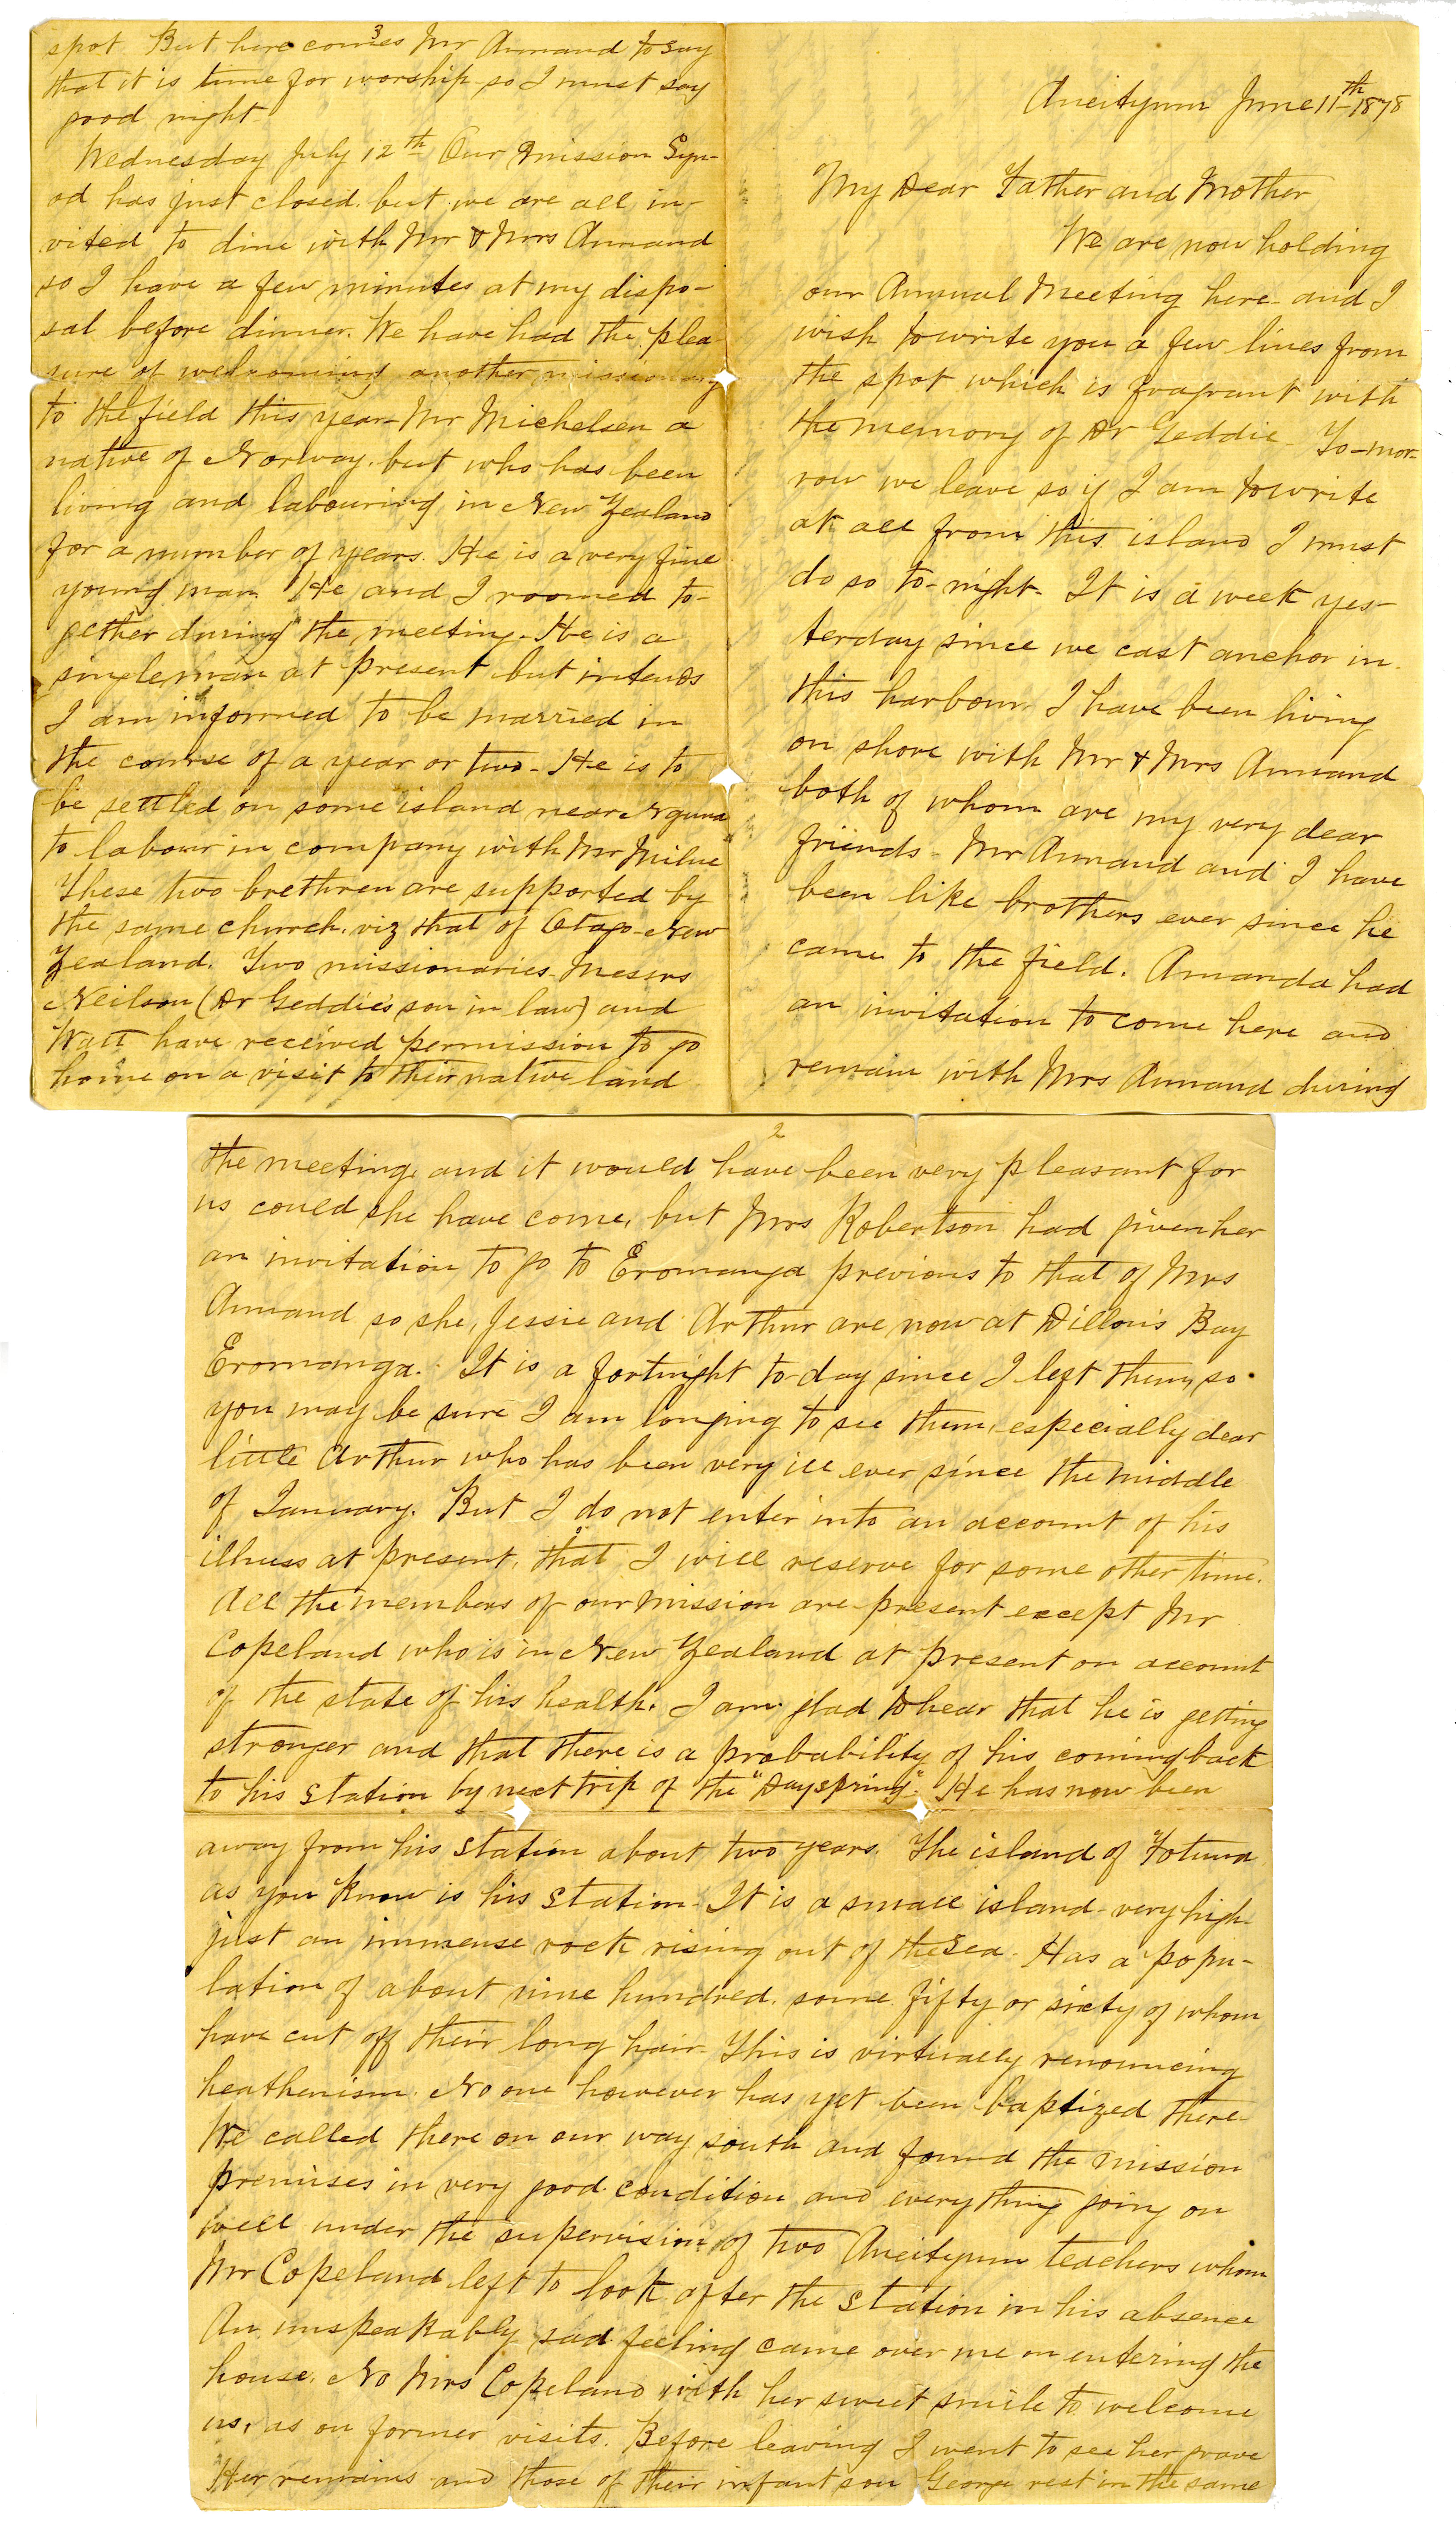 Aneityum June 11th 1878
My Dear Father and Mother
We are now holding
our Annual Meeting here - and I
wish to write you a few lines from
the spot which is fragrant with
the memory of Dr Geddie - To-mor-
row we leave so if I am to write
at all from this island I must
do so to-night. It is a week yes-
terday since we cast anchor in
this harbour. I have been living
on shore with Mr & Mrs Annand
both of whom are my very dear
friends - Mr Annand and I have
been like brothers ever since he
came to the field. Amanda had
an invitation to come here and
remain with Mrs Annand during
2
the meeting, and it would have been very pleasant for
us could she have come, but Mrs Robertson had given her
an invitation to go to Eromanga previous to that of Mrs
Annand so she, Jessie and Arthur are now at Dillon's Bay
Eromanga. It is a fortnight to-day since I left them, so
you may be sure I am longing to see them, especially dear
little Arthur who has been very ill ever since the middle
of January. But I do not enter into an account of his
illness at present, that I will reserve for some other time.
All the members of our mission are present except Mr
Copeland who is in New Zealand at present on account
of the state of his health. I am glad to hear that he is getting
stronger and that there is a probability of his coming back
to his station by next trip of the "Dayspring". He has now been
away from his station about two years. The island of Fotuna
as you know is his station - It is a small island - very high -
just an immense rock rising out of the sea. Has a popu-
lation of about nine hundred, some fifty or sixty of whom
have cut off their long hair - This is virtually renouncing
heathenism. No one however has yet been baptized there -
We called there on our way south and found the mission
premises in very good condition and everything going on
well under the supervision of two Aneityum teachers whom
Mr Copeland left to look after the station in his absence
An unspeakably sad feeling came over me on entering the
house. No Mrs Copeland with her sweet smile to welcome
us, as on former visits. Before leaving I went to see her grave
Her remains and those of their infant son George rest in the same
3
spot. But here comes Mr Annand to say
that it is time for worship so I must say
good night
Wednesday July 12th Our Mission Syn-
od has just closed, but we are all in-
vited to dine with Mr & Mrs Annand
so I have a few minutes at my dispo-
sal before dinner. We have had the plea
sure of welcoming another missionary
to the field this year - Mr Michelsen a
native of Norway, but who has been
living and labouring in New Zealand
for a number of years. He is a very fine
young man. He and I roomed to-
gether during the meeting. He is a
single man at present but intends
I am informed to be married in
the course of a year or two - He is to
be settled on some island near Nguna
to labour in company with Mr Milne
These two brethren are supported by
the same church, viz that of Otago - New
Zealand. Two missionaries Messrs
Neilson (Dr Geddie's son in law) and
Watt have received permission to go
home on a visit to their native land